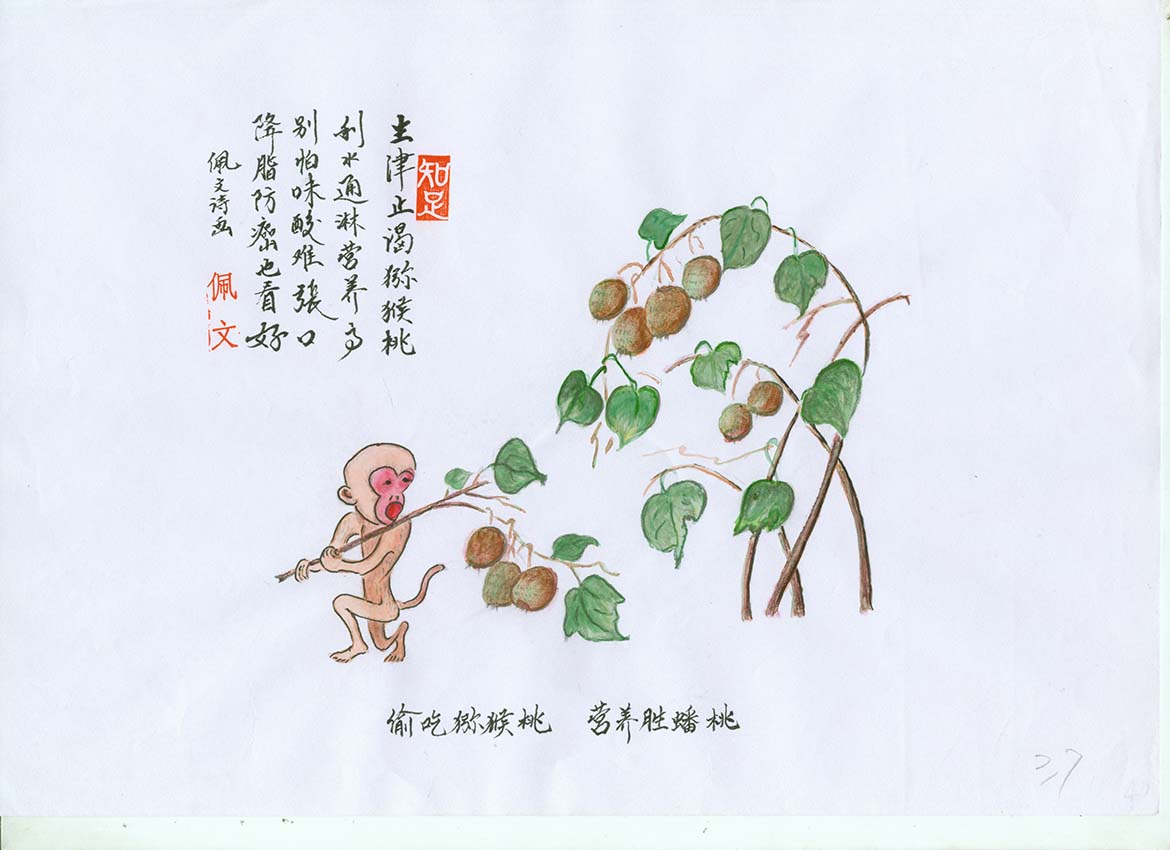 知足
生津止渴猕猴桃
利水通淋营养高
别怕味酸难张口
降脂防癌也看好
佩文诗画
佩文
偷吃猕猴桃 营养胜蟠桃
27